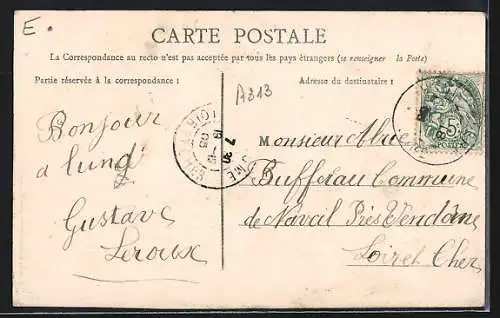 E.
CARTE POSTALE
La Correspondance au recto n'est pas acceptée par tous les pays étrangers (se renseigner la Poste)
Partie réservée à la correspondance :
Adresse du destinataire :
A313
Bonjour
a lundi
Gustave
Leroux
Monsieur
Buffereau Commune
de Naveil Près Vendôme
Loir et Cher
5c
POSTES